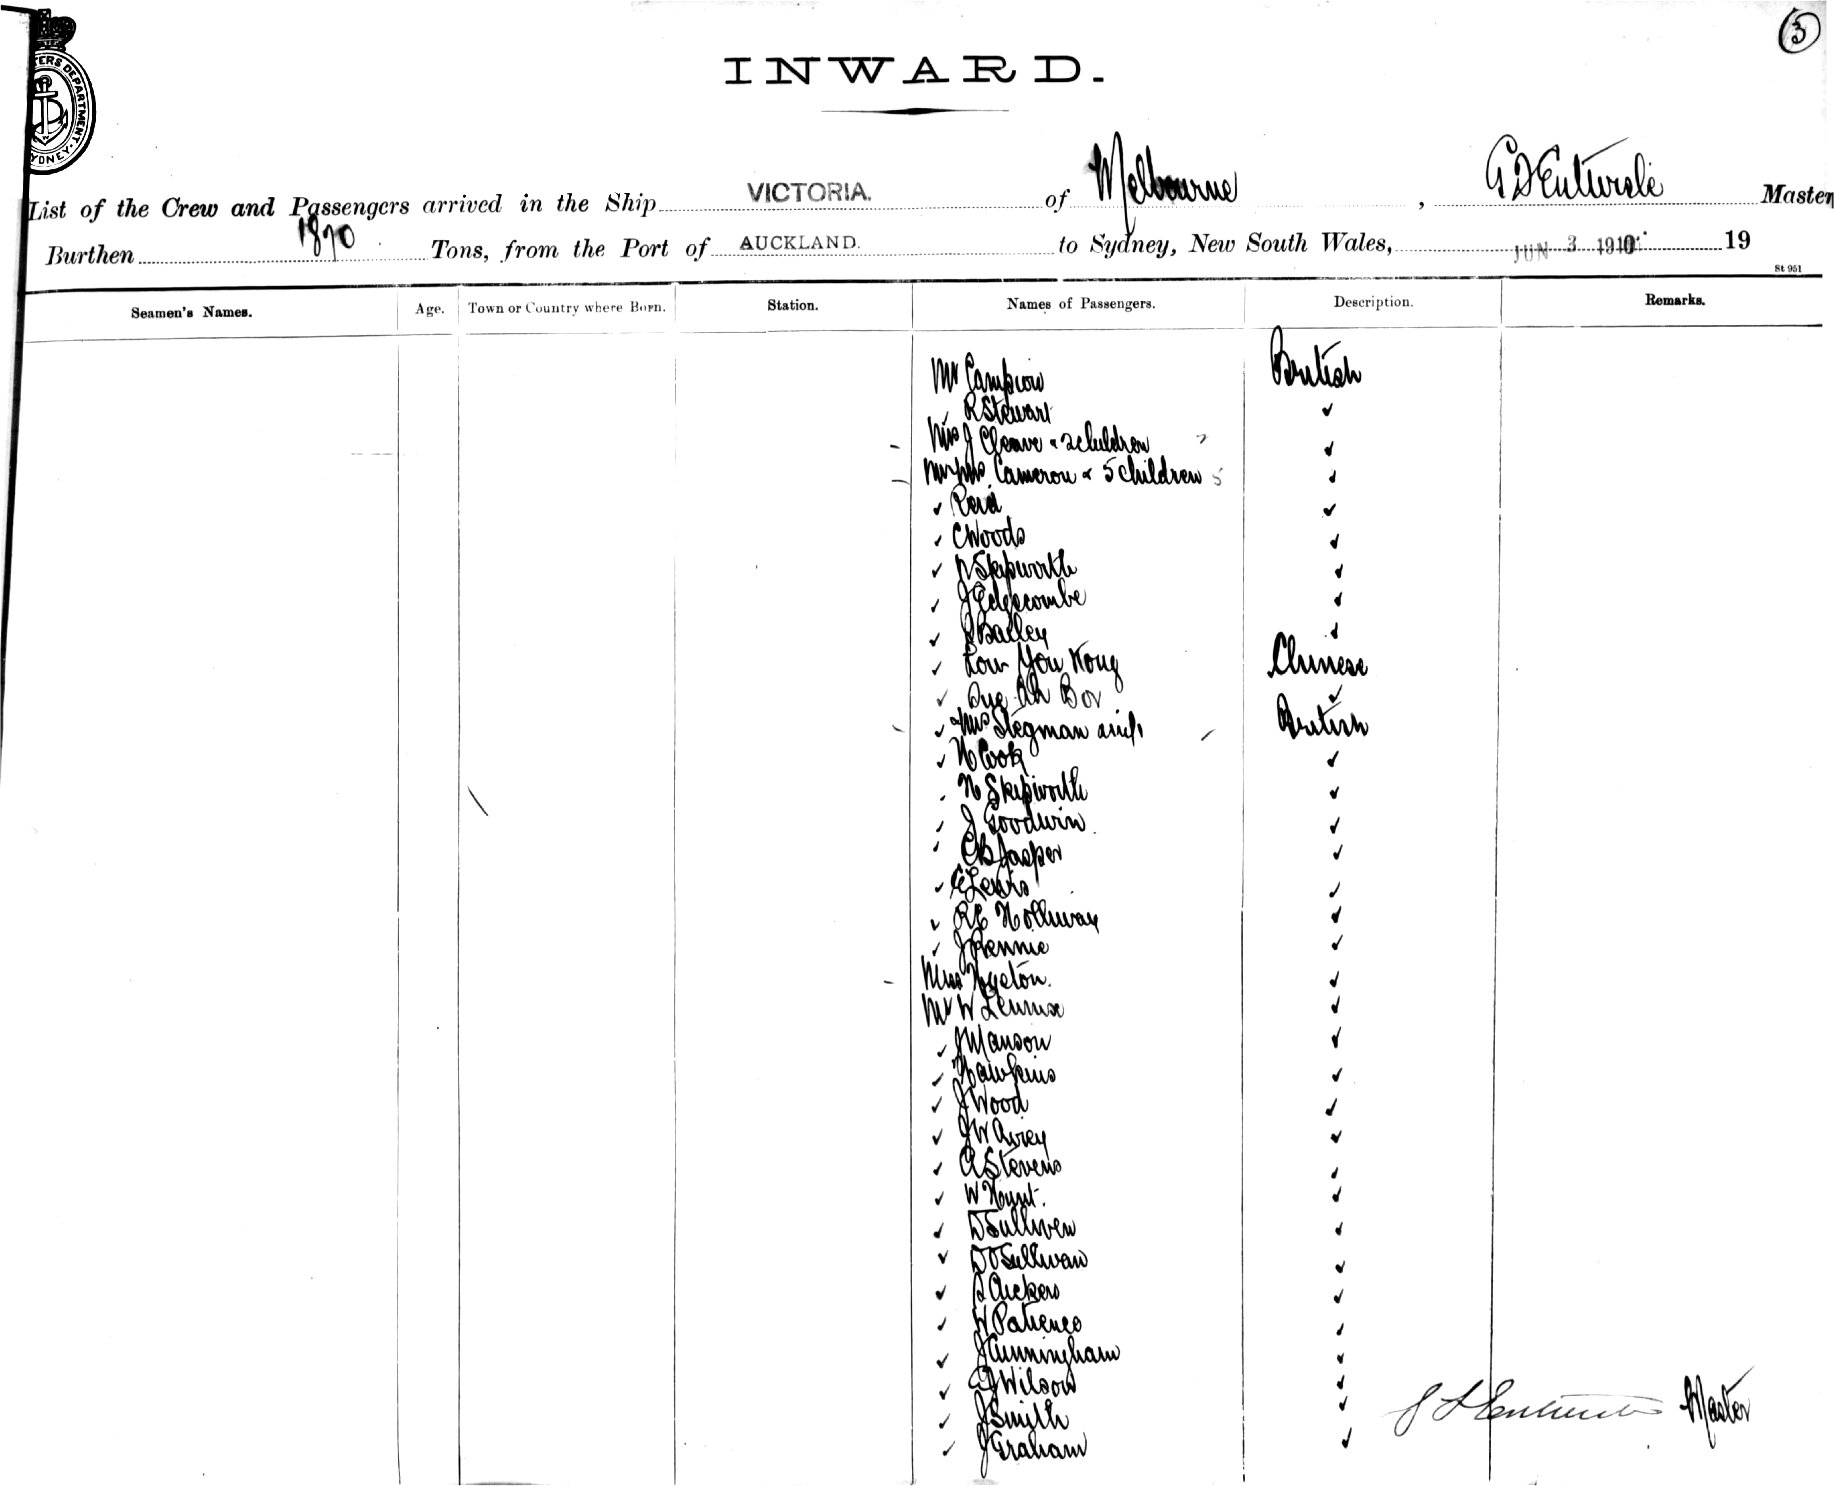 3
INWARD.
TERS DEPARTMENT
YDNEY.
List of the Crew and Passengers arrived in the Ship VICTORIA. of Melbourne, G D Entwisle Master
Burthen 1870 Tons, from the Port of AUCKLAND. to Sydney, New South Wales, JUN 3 1910 19
St 951
Seamen's Names. Age. Town or Country where Born. Station. Names of Passengers. Description. Remarks.
Mr Campion British
✓ R Stewart ✓
Mrs J Cleave & 2 children ✓
Mr & Mrs Cameron & 5 children 5 ✓
✓ Reid ✓
✓ C Woods ✓
✓ Skipworth ✓
✓ J Edgecombe ✓
✓ Bailey ✓
✓ Low You Kong Chinese
✓ Sue Ah Boy ✓
✓ Mrs Stegman British
✓ H Cook ✓
N Skipworth ✓
✓ J Goodwin ✓
✓ C B Jasper ✓
✓ E Lewis ✓
✓ R E Holliway ✓
✓ J Rennie ✓
Miss ✓
Mr W Lennox ✓
✓ J Manson ✓
✓ Hawkins ✓
✓ J Wood ✓
✓ J W Avrey ✓
✓ A Stevens ✓
✓ W Hunt. ✓
✓ D Sulliven ✓
✓ D OSullivan ✓
✓ Aickers ✓
✓ W Patience ✓
✓ J Cunningham ✓
✓ Wilson ✓
✓ J Smith ✓ Master
✓ J Graham ✓